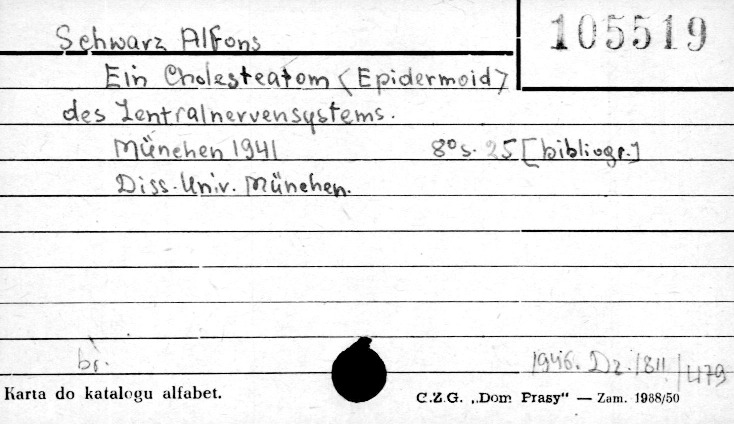 Schwarz Alfons
105519
Ein Cholesteatom <Epidermoid>
des Zentralnervensystems.
München 1941 8° s. 25 [bibliogr.]
Diss. Univ. München.
br. 1946. Dz. 1811/479
Karta do katalogu alfabet. C.Z.G. „Dom Prasy" — Zam. 1988/50